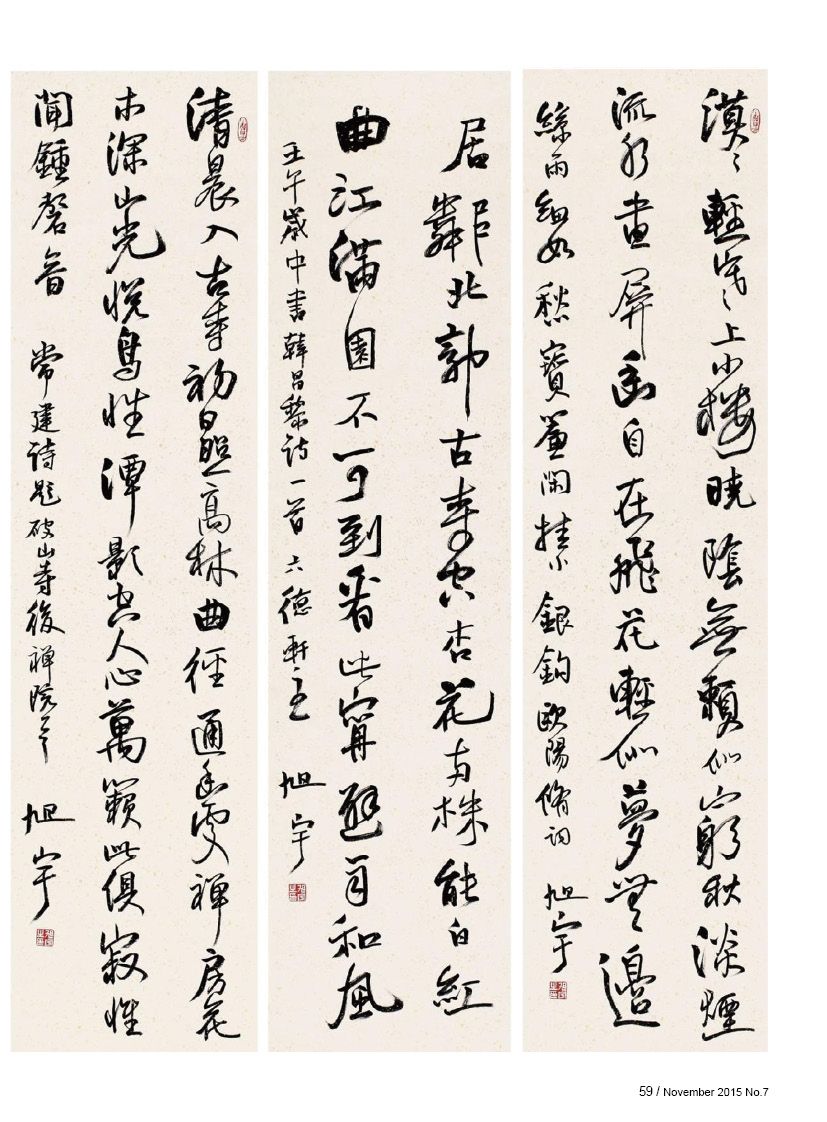 漠〻輕寒上小樓曉陰無賴似窮秋淡煙
流水畫屏幽自在飛花輕似夢無邊
絲雨細如愁寶簾閑挂小銀鈎 歐陽脩詞 旭宇
居鄰北郭古寺空杏花兩株能白紅
曲江滿園不可到看此寧避雨和風
壬午歲中書韓昌黎詩一首 六德軒主 旭宇
清晨入古寺初日照高林曲徑通幽處禪房花
木深山光悅鳥性潭影空人心萬籟此俱寂惟
聞鍾磬音 常建詩題破山寺後禪院 旭宇
59 / November 2015 No.7